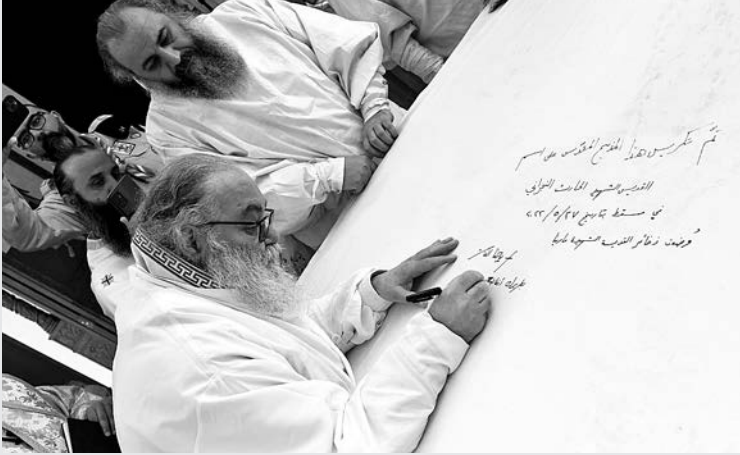 تمّ تكريس هذا المذبح المقدس على اسم
القديس الشهيد الحارث النجراني
في مسقط بتاريخ ٢٠٢٢/٥/٢٧
وُضعت ذخائر القديسة الشهيدة مارينا
يوحنا العاشر
بطريرك